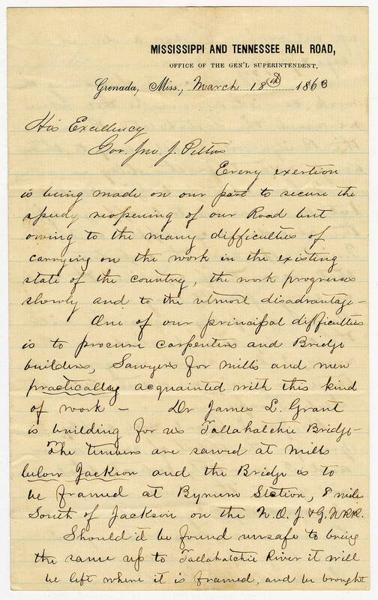 MISSISSIPPI AND TENNESSEE RAIL ROAD,
OFFICE OF THE GEN'L SUPERINTENDENT,
Grenada, Miss., March 18th 1863
His Excellency
Gov. Jno J. Pettus
Every exertion
is being made on our part to secure the
speedy reopening of our Road but
owing to the many difficulties of
carrying on the work in the existing
state of the country, the work progresses
slowly and to the utmost disadvantage -
One of our principal difficulties
is to procure carpenters and Bridge
builders, Sawyers for Mills and men
practically acquainted with this kind
of work - Dr James L. Grant
is building for us Tallahatchie Bridge -
The timbers are sawed at Mills
below Jackson and the Bridge is to
be framed at Bynum Station, 8 miles
South of Jackson on the N.O.J. & G.N.R.R.
Should it be found unsafe to bring
the same up to Tallahatchie River it will
be left where it is framed, and be brought